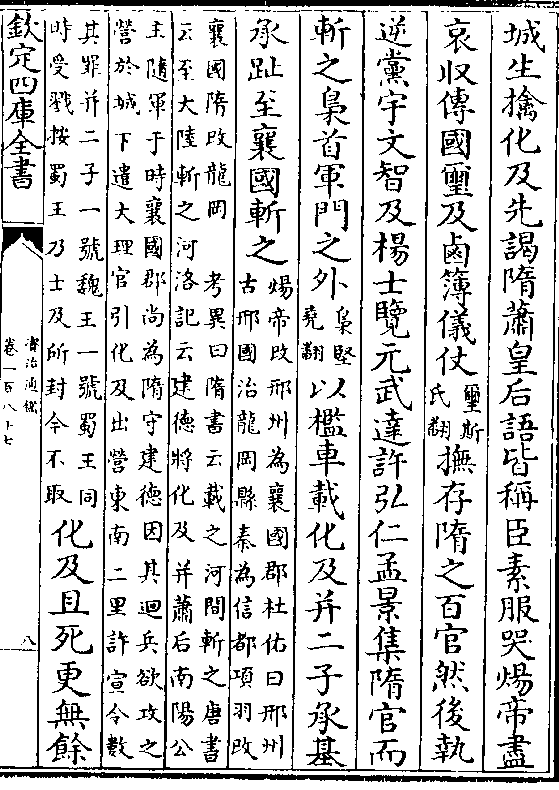 城生擒化及先謁隋蕭皇后語皆稱臣素服哭煬帝盡
哀収傳國璽及鹵簿儀仗璽斯氏翻撫存隋之百官然後執
逆黨宇文智及楊士覽元武達許弘仁孟景集隋官而
斬之梟首軍門之外梟堅堯翻以檻車載化及并二子承基
承趾至襄國斬之煬帝改邢州為襄國郡杜佑曰邢州古邢國治龍岡縣秦為信都項羽改
襄國隋改龍岡　考異曰隋書云載之河間斬之唐書云至大陸斬之河洛記云建德將化及并蕭后南陽公
主隨軍于時襄國郡尚為隋守建德因其迴兵欲攻之營於城下遣大理官引化及出營東南二里許宣令數
其罪并二子一號魏王一號蜀王同時受戮按蜀王乃士及所封今不取化及且死更無餘
欽定四庫全書
資治通鑑
卷一百八十七
八